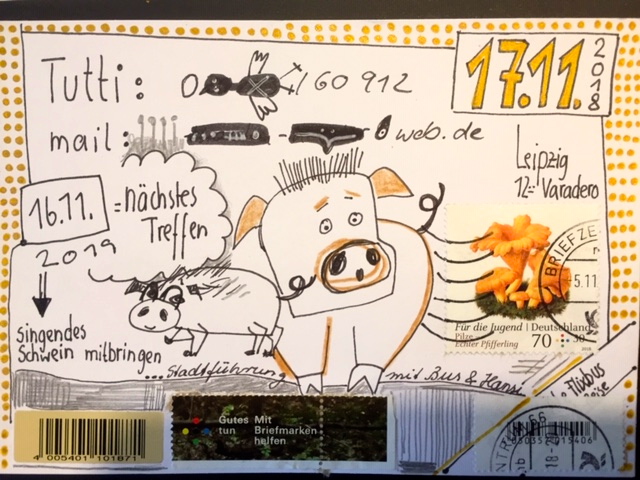 Tutti: 0 /160 912
17.11.
2018
mail: - web.de
Leipzig
12:= Varadero
16.11. = nächstes
Treffen
2019
singendes
Schwein mitbringen
...Stadtführung mit Bus & Hansi
Flixbus
BRIEFZE
-5.11
Für die Jugend | Deutschland
Pilze
Echter Pfifferling
70 + 30
Gutes Mit
tun Briefmarken
helfen
4 005401 101871